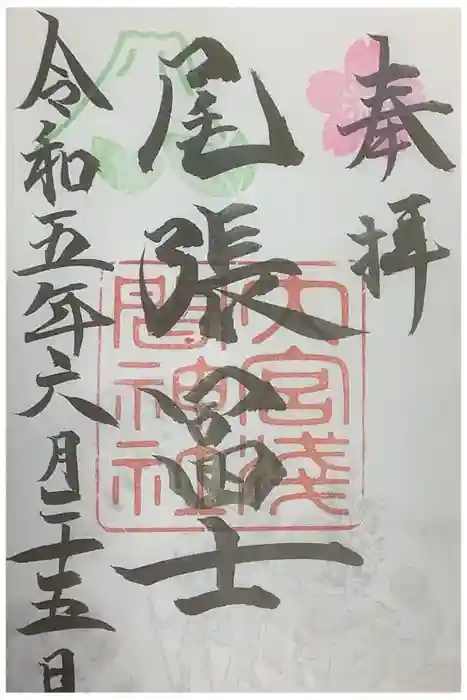 奉拝
尾張冨士
大宮浅間神社
令和五年六月二十五日